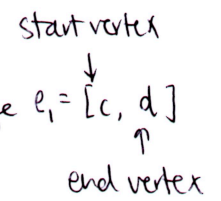 start vertex
↓
e e₁ = [c, d]
↑
end vertex